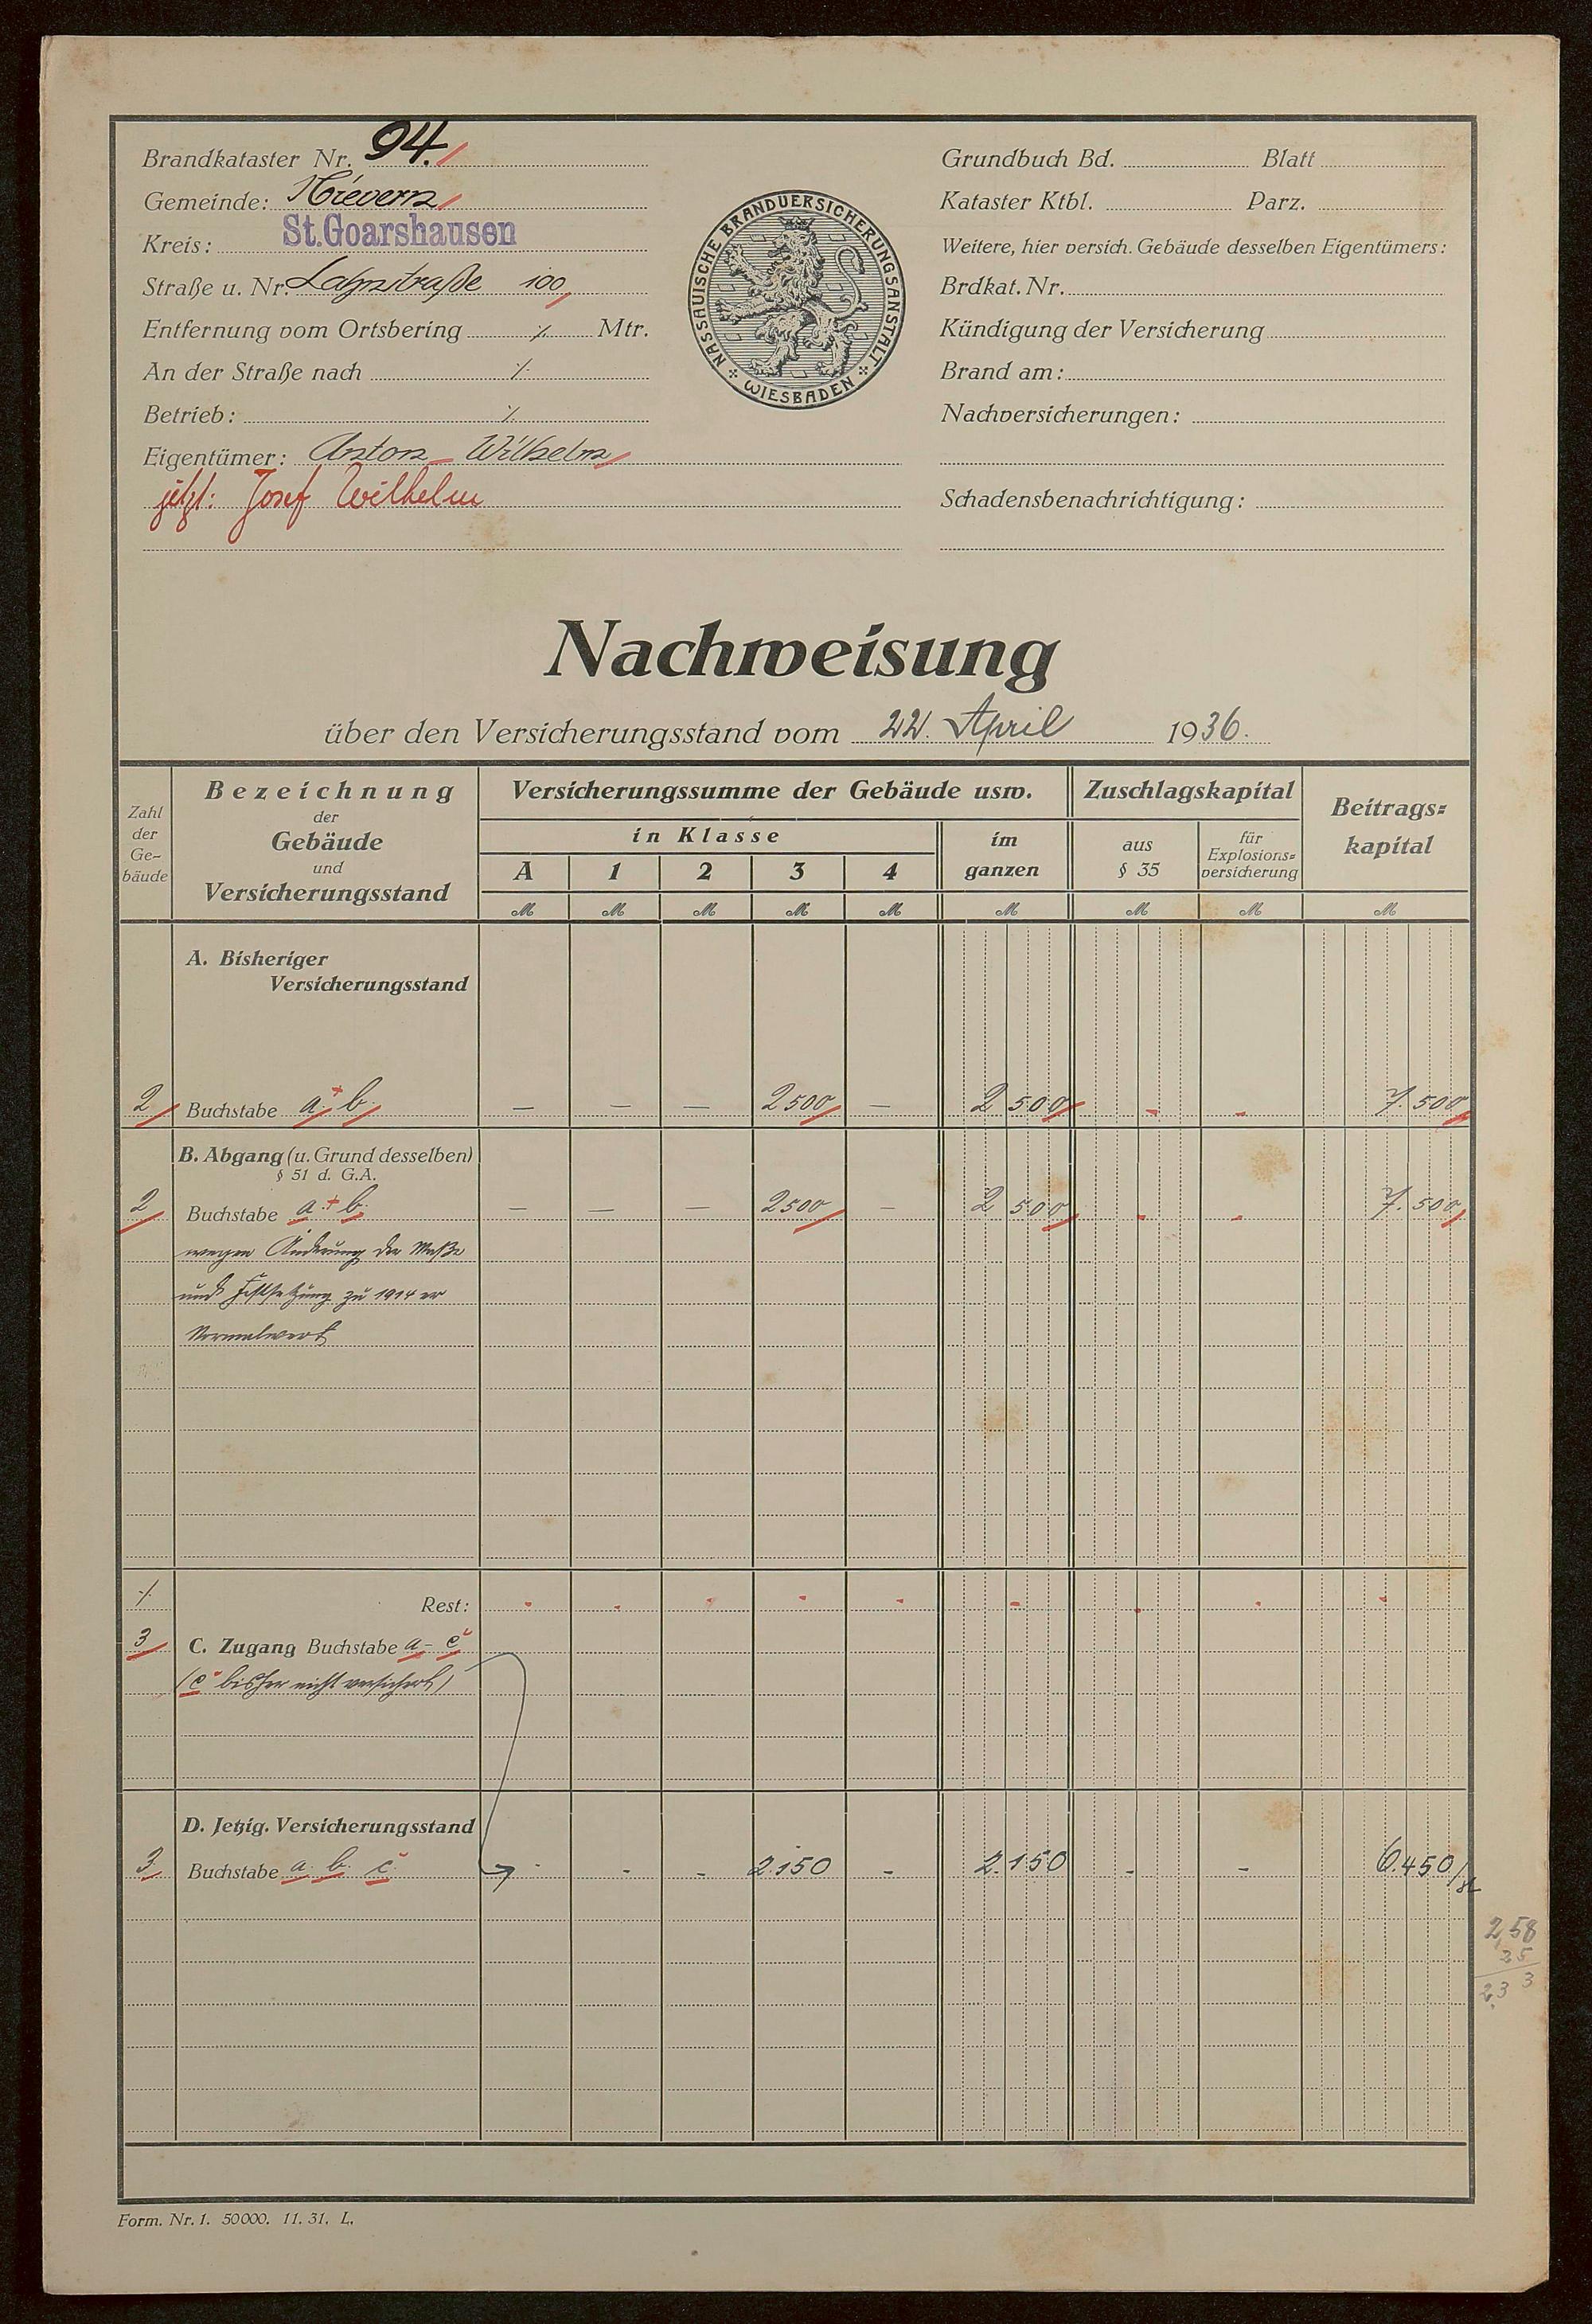 Brandkataster Nr. 94.
Gemeinde: Nievern
Kreis: St.Goarshausen
Straße u. Nr. Lahnstraße 100
Entfernung vom Ortsbering ./. Mtr.
An der Straße nach ./.
Betrieb: ./.
Eigentümer: Anton Wilhelm
jetzt: Josef Wilhelm
NASSAUISCHE BRANDVERSICHERUNGSANSTALT
WIESBADEN
Grundbuch Bd. Blatt
Kataster Ktbl. Parz.
Weitere, hier versich. Gebäude desselben Eigentümers:
Brdkat. Nr.
Kündigung der Versicherung
Brand am:
Nachversicherungen:
Schadensbenachrichtigung:
Nachweisung
über den Versicherungsstand vom 22. April 1936.
Zahl der Ge-bäude
Bezeichnung der Gebäude und Versicherungsstand
Versicherungssumme der Gebäude usw.
in Klasse
A 1 2 3 4
im ganzen
Zuschlagskapital
aus § 35
für Explosions-versicherung
Beitrags-kapital
M M M M M M M M M
A. Bisheriger
Versicherungsstand
2 Buchstabe a + b. — — — 2500 — 2 500 - - 7.500
B. Abgang (u. Grund desselben)
§ 51 d. G.A.
2 Buchstabe a + b. — — — 2500 — 2 500 - - 7.500
wegen Änderung der Maße
und Festsetzung zu 1914 er
Normalwert
./. Rest: - - - - - - - - -
3 C. Zugang Buchstabe a - c
(c bisher nicht versichert)
D. Jetzig. Versicherungsstand
3 Buchstabe a. b. c - - - 2.150 - 2.150 - - 6.450
2,58
25
2,33
Form. Nr. 1. 50000. 11. 31. L.